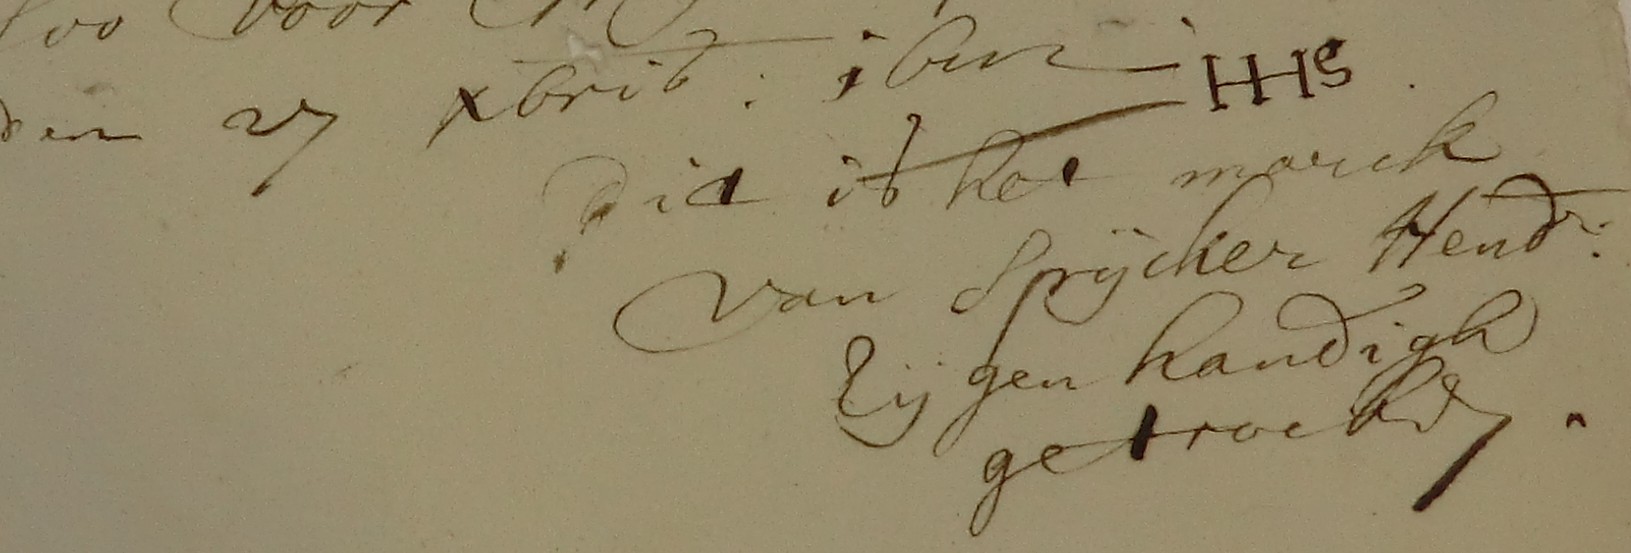 soo voor
den 27 xbris: HHS.
dit is het marck
van Spijcker Hendr:
Eijgen handigh
getrocken.